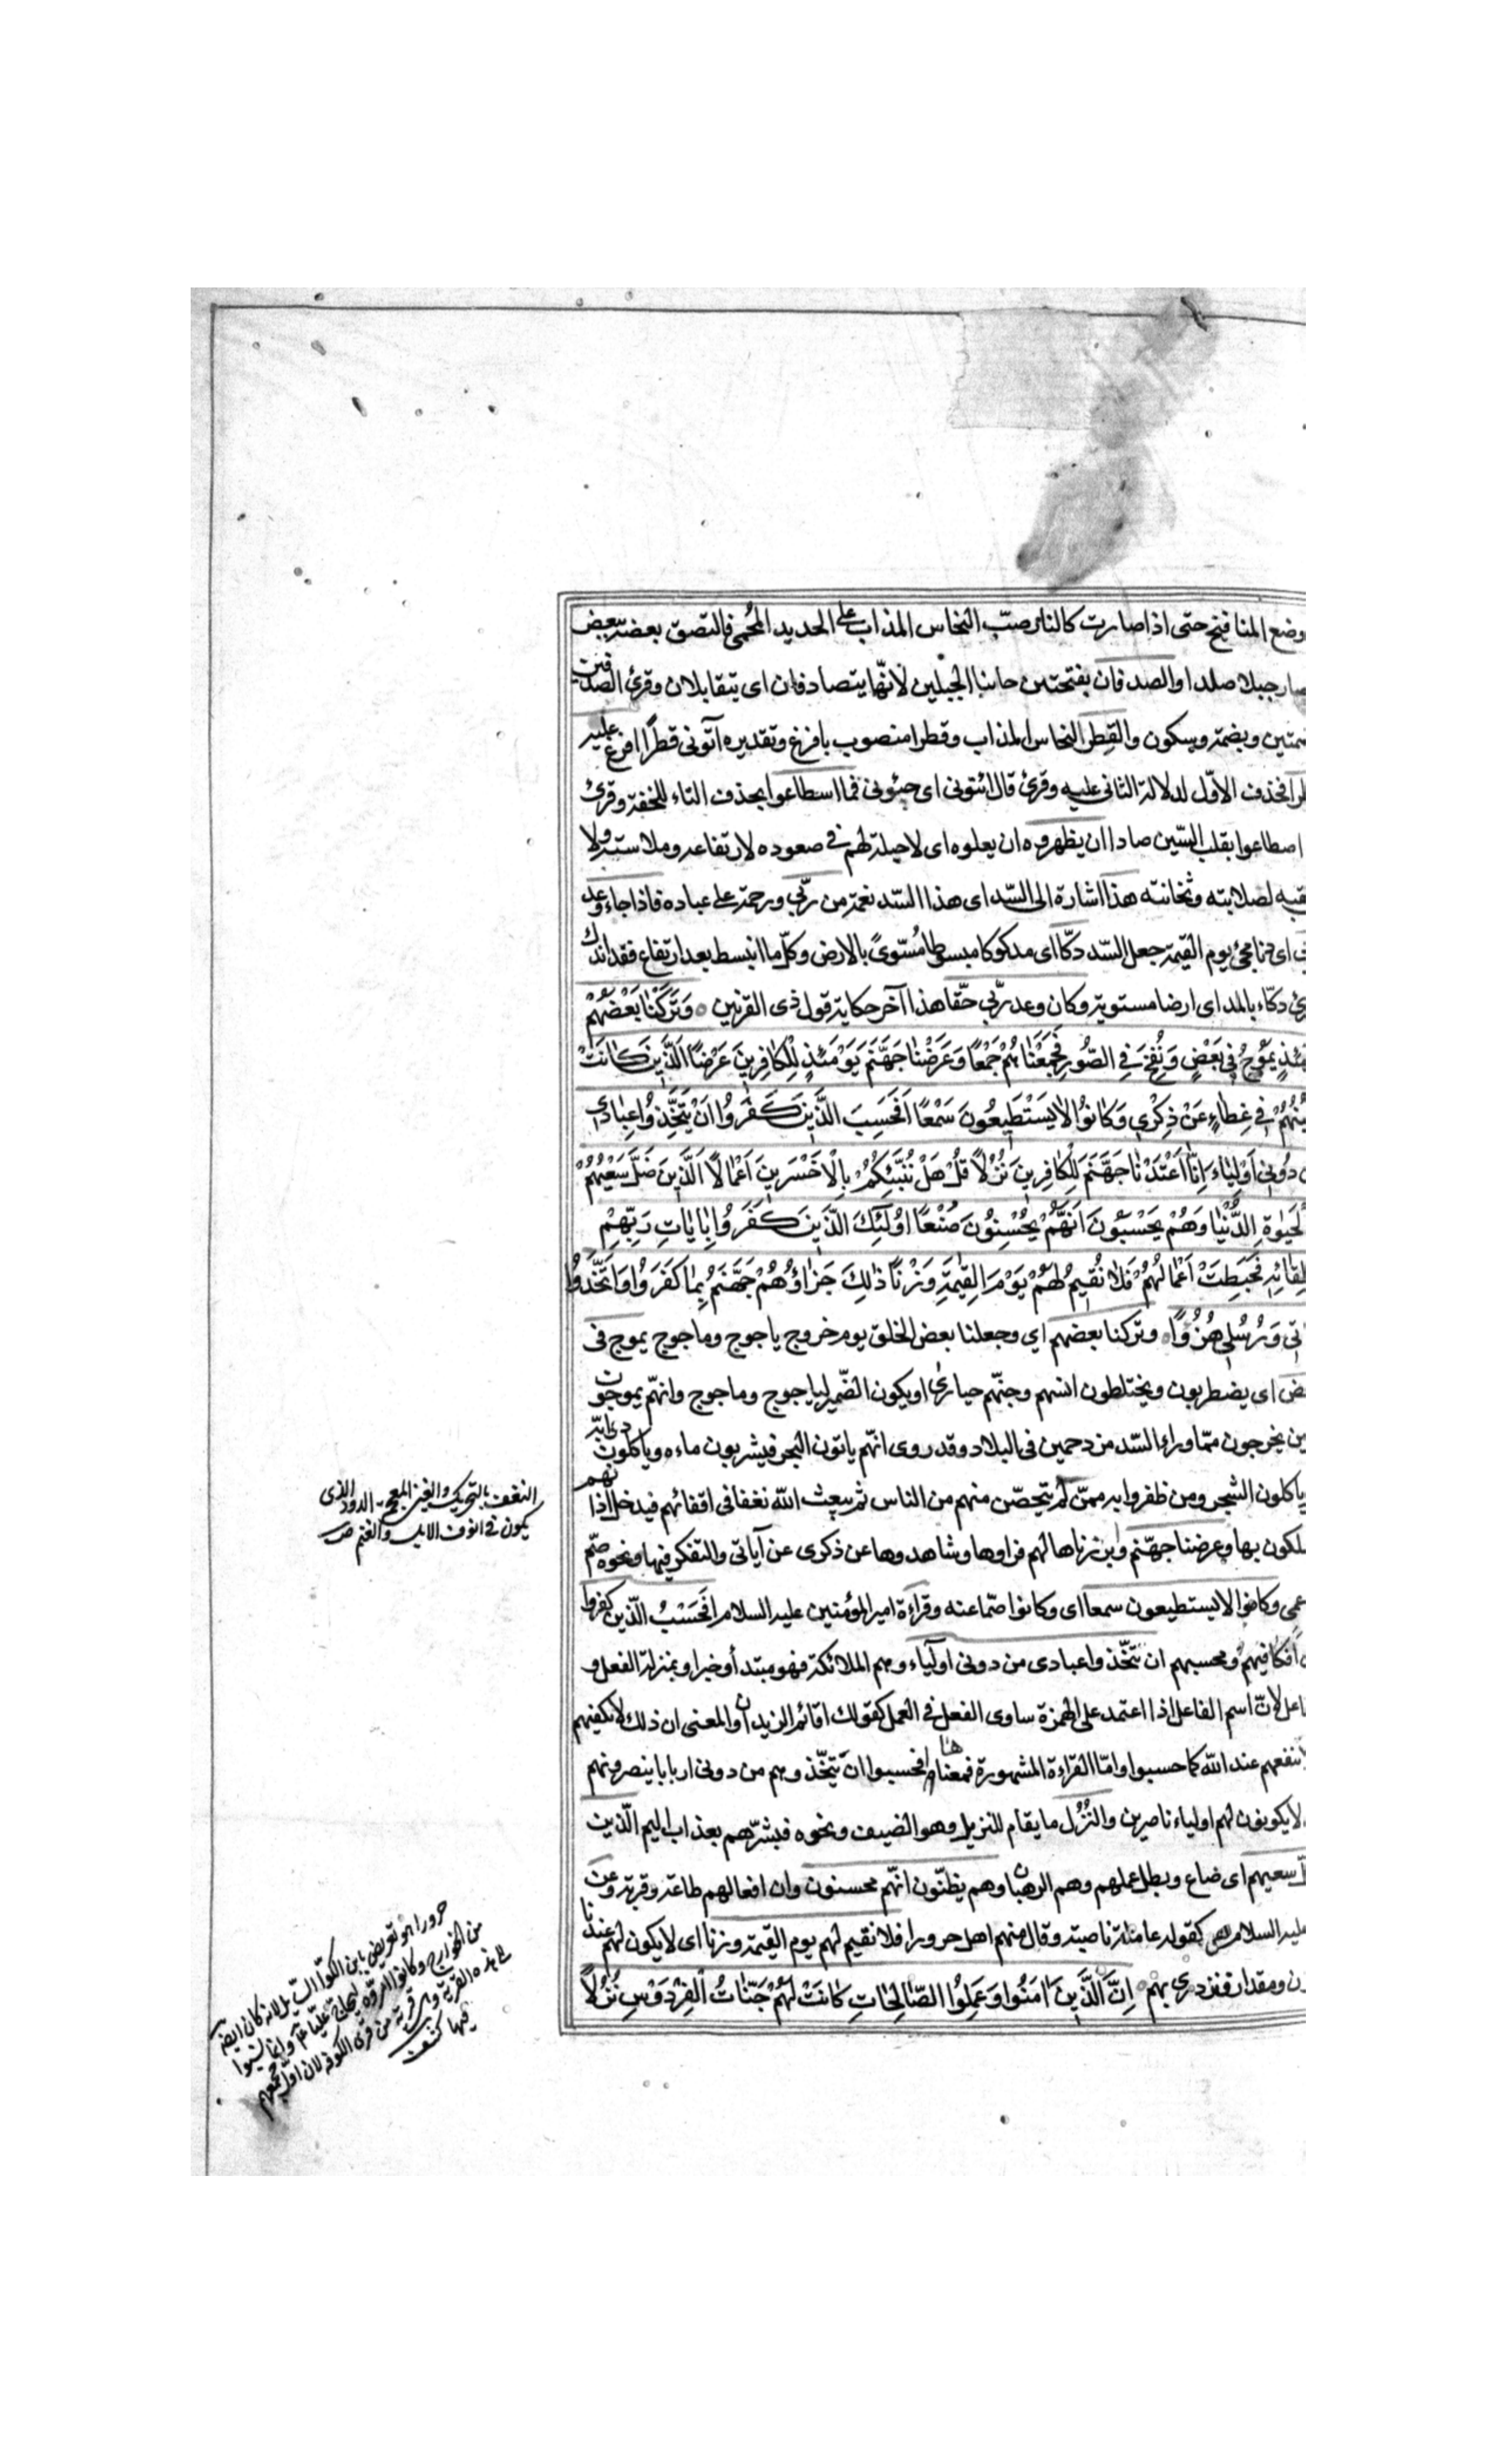 وضع المنافيخ حتى اذا صارت كالنار صبّ النحاس المذاب على الحديد المُحمى فالتصق بعضه ببعض
صار جبلا صلدا والصدفان بفتحتين جانبا الجبلين لأنّهما يتصادفان اى يتقابلان وقرئ الصدفين
بضمتين وبضمة وسكون والقِطر النحاس المذاب وقطرا منصوب بافرغ وتقديره آتونى قطرًا افرغ عليه
قطرا فحذف الاوّل لدلالة الثانى عليه وقرئ قال ائتونى اى جيئونى فما اسطاعوا بحذف التاء للخفة وقرئ
اصطاعوا بقلب السّين صادا ان يظهروه ان يعلوه اى لا حيلة لهم فى صعوده لارتفاعه وملاسته ولا
نقبه لصلابته وثخانته هذا اشارة الى السّد اى هذا السّد نعمة من ربّى ورحمة على عباده فاذا جاء وعد
ربى اى دنا مجئ يوم القيٰمة جعل السّد دكّا اى مدكوكا مبسوطا مُسّتوىً بالارض وكلّ ما انبسط بعد ارتفاع فقد اندك
وقرئ دكّاء بالمد اى ارضا مستوية وكان وعد ربّى حقّا هذا آخر حكاية قول ذى القرنين ○ وَتَرَكْنٰا بَعْضَهُمْ
يَوْمَئِذٍ يَمُوجُ فِى بَعْضٍ وَنُفِخَ فِى الصُّورِ فَجَمَعْنٰاهُمْ جَمْعًا وَعَرَضْنٰا جَهَنَّمَ يَوْمَئِذٍ لِلْكٰافِرِينَ عَرْضًا اَلَّذِينَ كٰانَتْ
اَعْيُنُهُمْ فِى غِطٰاءٍ عَنْ ذِكْرِى وَكٰانُوا لٰا يَسْتَطِيعُونَ سَمْعًا اَفَحَسِبَ الَّذِينَ كَفَرُوا اَنْ يَتَّخِذُوا عِبٰادِى
مِنْ دُونِى اَوْلِيٰاءَ اِنّٰا اَعْتَدْنٰا جَهَنَّمَ لِلْكٰافِرِينَ نُزُلًا قُلْ هَلْ نُنَبِّئُكُمْ بِالْاَخْسَرِينَ اَعْمٰالًا اَلَّذِينَ ضَلَّ سَعْيُهُمْ
فِى الْحَيٰوةِ الدُّنْيٰا وَهُمْ يَحْسَبُونَ اَنَّهُمْ يُحْسِنُونَ صُنْعًا اُولٰئِكَ الَّذِينَ كَفَرُوا بِاٰيٰاتِ رَبِّهِمْ
وَلِقٰائِهِ فَحَبِطَتْ اَعْمٰالُهُمْ فَلٰا نُقِيمُ لَهُمْ يَوْمَ الْقِيٰمَةِ وَزْنًا ذٰلِكَ جَزٰاؤُهُمْ جَهَنَّمُ بِمٰا كَفَرُوا وَاتَّخَذُوا
اٰيٰاتِى وَرُسُلِى هُزُوًا ○ وتركنا بعضهم اي وجعلنا بعض الخلق يوم خروج ياجوج وماجوج يموج فى
بعض اى يضطربون ويختلطون انسهم وجنّهم حيارىٰ او يكون الضّمير لياجوج وماجوج وانهّم يموجون
حين يخرجون ممّا وراء السّد مزدحمين فى البلاد وقد روى انهّم ياتون البحر فيشربون ماءه وياكلون دوابّه
ثم ياكلون الشجر ومن ظفروا به ممّن لم يتحصّن منهم من الناس ثم يبعث الله نغفا فى اقفائهم فيدخل اذانهم
فيهلكون بها وعرضنا جهنّم وابرزناها لهم فراوها وشاهدوها عن ذكرى عن آياتى والتفكر فيها ونحوه صمّ
عمى وكانوا لا يستطيعون سمعا اى وكانوا صمّا عنه وقراءة امير المؤمنين عليه السلام افَحَسْبُ الّذين كفروا
اى افكافيهم ومحسبهم ان يتّخذوا عبادى من دونى اولياء وهم الملائكة فهو مبتدأ وخبر او بمنزلة الفعل و
الفاعل لانّ اسم الفاعل اذا اعتمد على الهمزة ساوى الفعل فى العمل كقولك اقائم الزيدان والمعنى ان ذلك لا يكفيهم
ولا ينفعهم عند الله كما حسبوا وامّا القراءة المشهورة فمعناها افحسبوا ان يتّخذوهم من دونى اربابا ينصرونهم
لا يكونون لهم اولياء ناصرين والنُزُل ما يقام للنزيل وهو الضيف ونحوه فبشّرهم بعذاب اليم الّذين
ضلّ سعيهم اى ضاع وبطل عملهم وهم الرهبان وهم يظنّون انّهم محسنون وان افعالهم طاعة وقربة وعن
علىّ عليه السلام هى كقوله عاملة ناصبة وقال منهم اهل حرورا فلا نقيم لهم يوم القيٰمة وزنا اى لا يكون لهم عندنا
وزن ومقدار فنزدرى بهم ○ اِنَّ الَّذِينَ اٰمَنُوا وَعَمِلُوا الصّٰالِحٰاتِ كٰانَتْ لَهُمْ جَنّٰاتُ الْفِرْدَوْسِ نُزُلًا
النغف بالتحريك والغين المعجمة الدود الذى
يكون فى انوف الابل والغنم ص
حرورا هو تعريض بابن الكوّا السايل لانه كان ايضا
من الخوارج وكانوا
هذه القرية وهى قرية من قرى الكوفة لان اوّل مجمعهم
فيها كشف